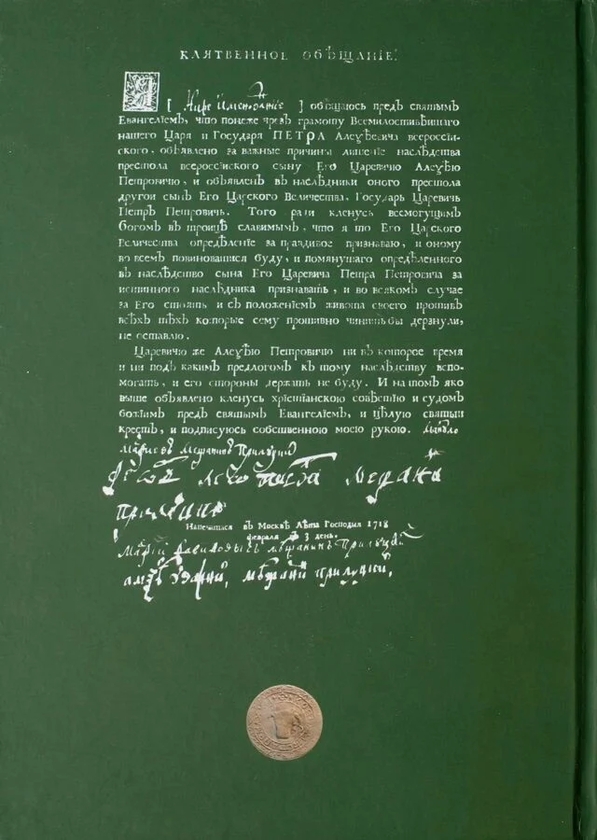 КЛЯТВЕННОЕ ОБѢЩАНІЕ.
Я [ ] обѣщаюсь предъ святымъ
Евангеліемъ, что понеже чрезъ грамоту Всемилостивѣйшаго
нашего Царя и Государя ПЕТРА Алеѯѣевича всероссій-
ского, объявлено за важные причины лишеніе наслѣдства
престола всероссійского сыну Его Царевичю Алеѯѣю
Петровичю, и объявленъ въ наслѣдники оного престола
другой сынъ Его Царского Величества, Государь Царевичь
Петръ Петровичь. Того ради кленусь всемогущимъ
богомъ въ троицѣ славимымъ, что я то Его Царского
Величества опредѣленіе за правдивое признаваю, и оному
во всемъ повиноватися буду, и помянутаго опредѣленного
въ наслѣдство сына Его Царевича Петра Петровича за
истинного наслѣдника признавать, и во всякомъ случае
за Его стоять и съ положеніемъ живота своего противъ
всѣхъ тѣхъ которые сему противно чинить бы дерзнули,
не оставлю.
Царевичю же Алеѯѣю Петровичю ни въ которое время
и ни подъ какимъ предлогомъ къ тому наслѣдству вспо-
могать, и его стороны держать не буду. И на томъ яко
выше объявлено кленусь хрістіанскою совѣстію и судомъ
божіимъ предъ святымъ Евангеліемъ, и цѣлую святыи
крестъ, и подписуюсь собственною моею рукою.
Напечатася въ Москвѣ Лѣта Господня 1718
февраля въ 3 день.